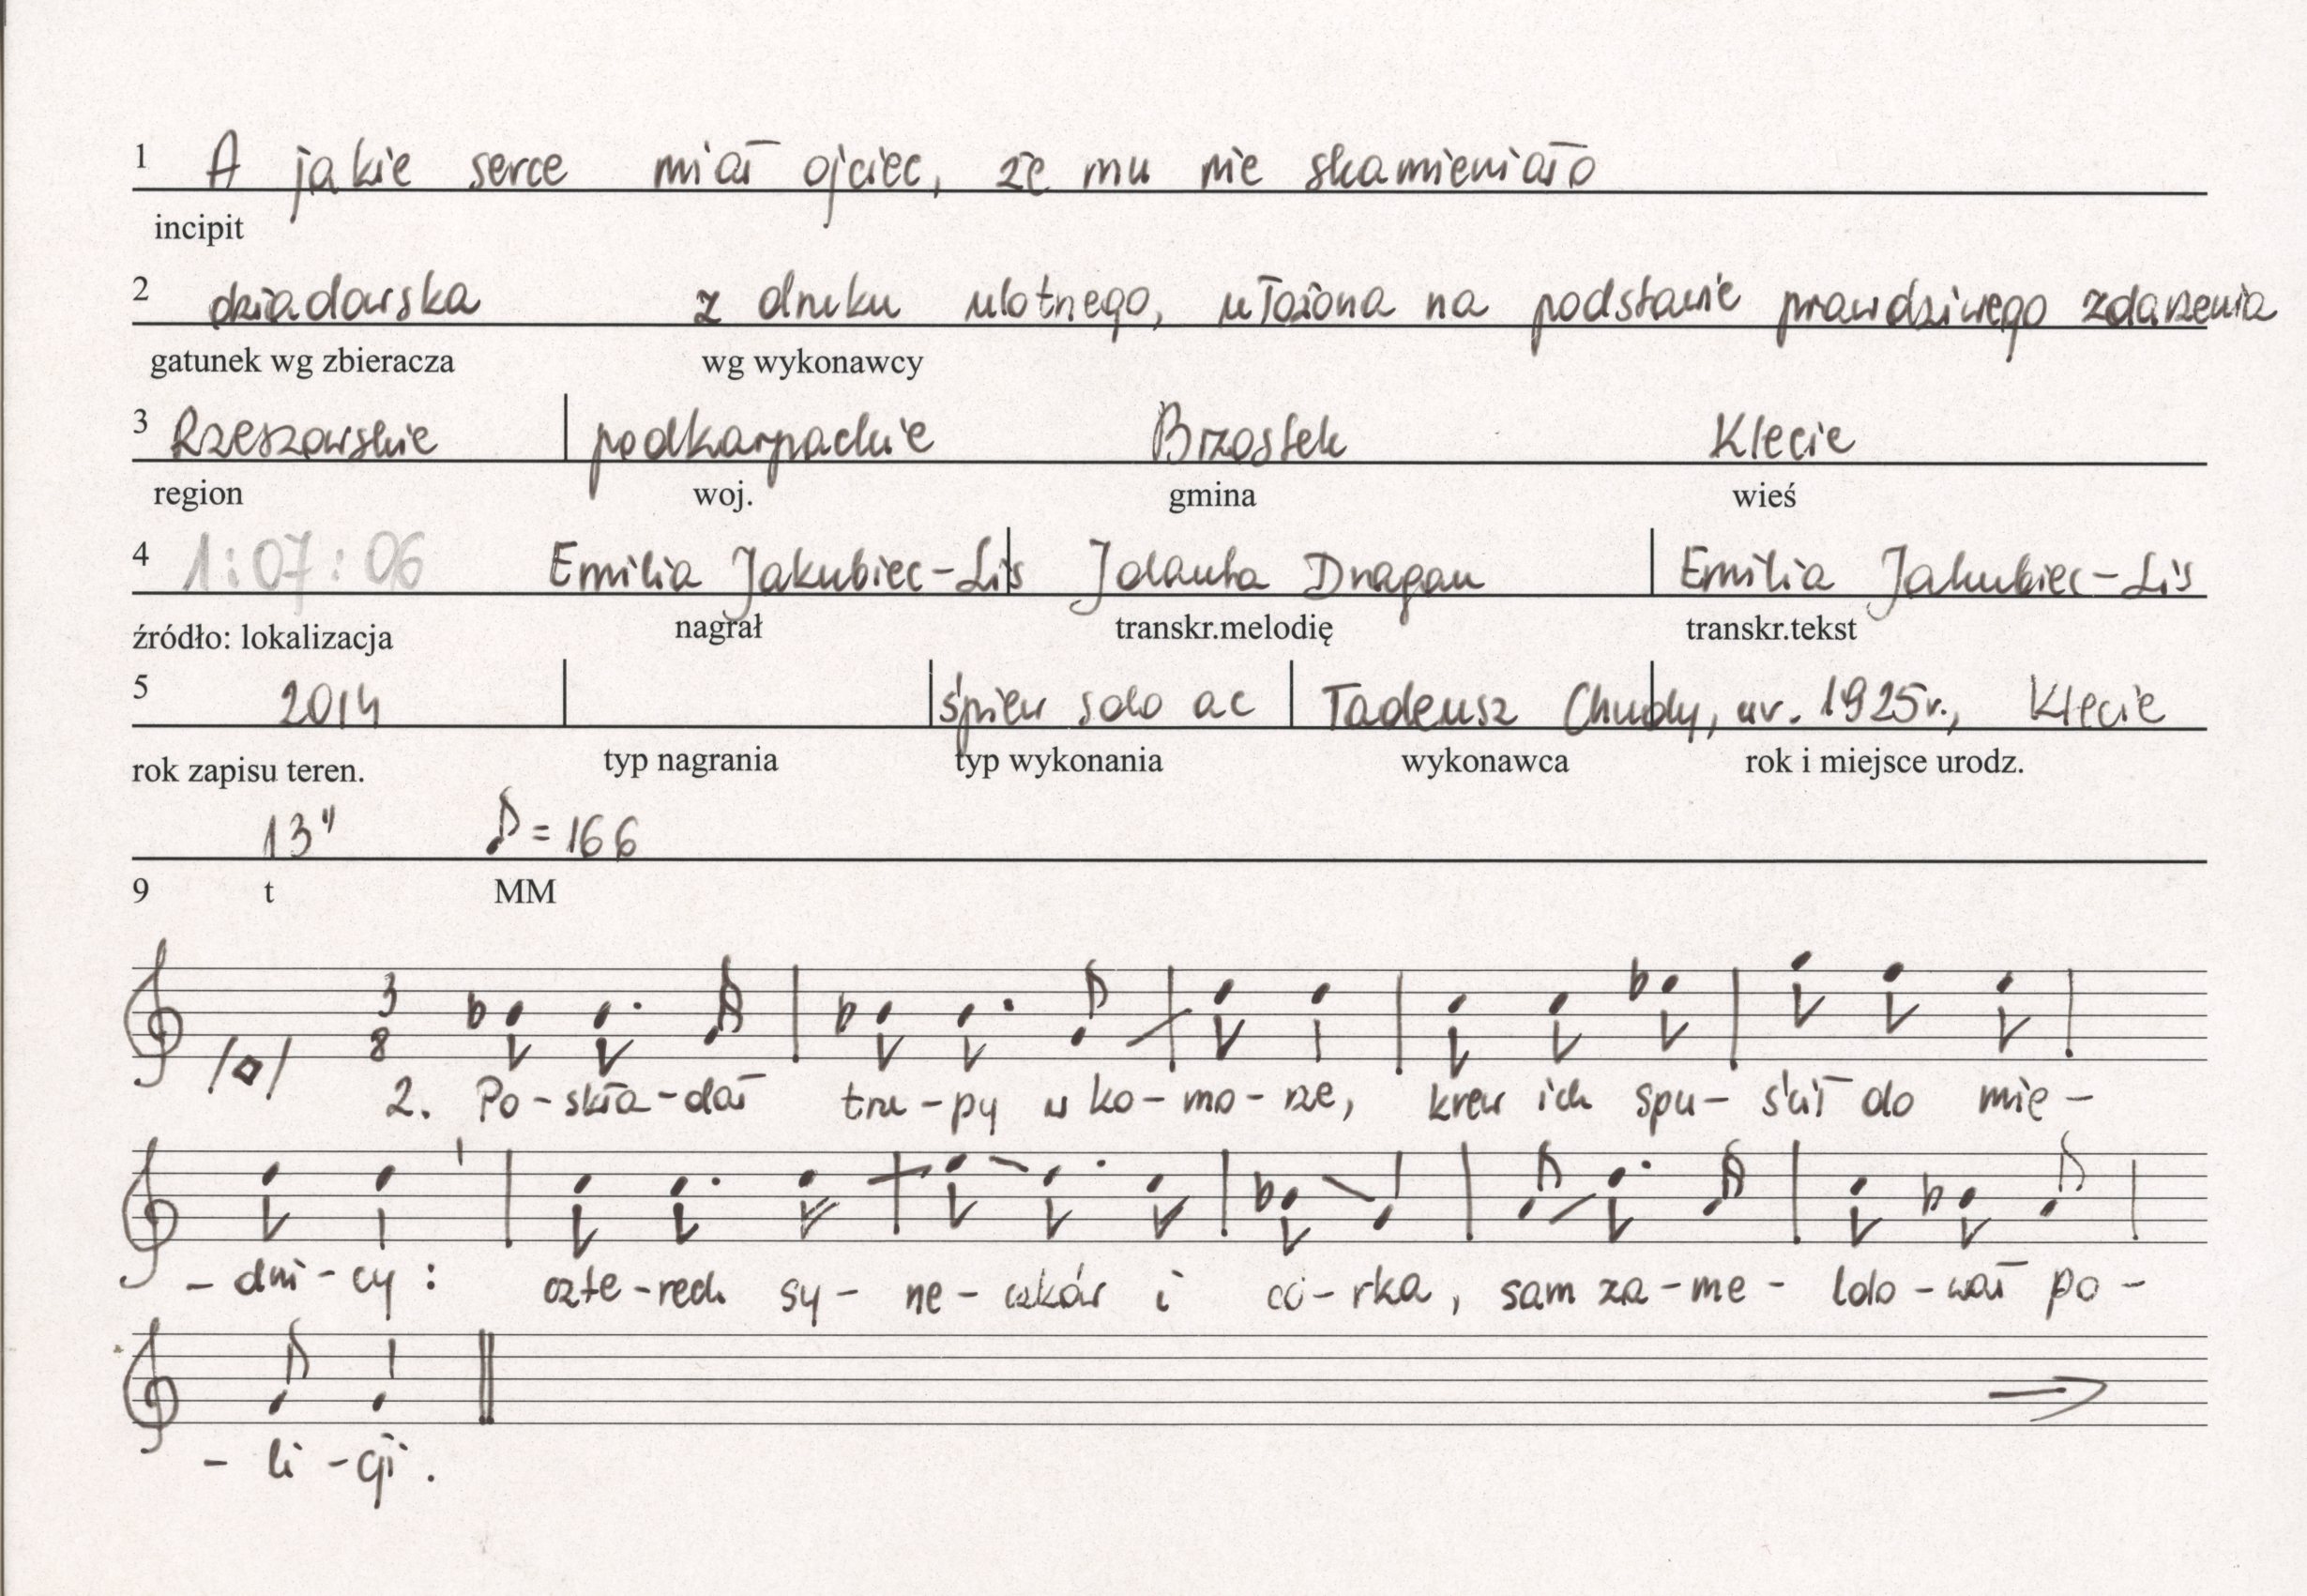 1 A jakie serce miał ojciec, że mu nie skamieniało
incipit
2 dziadowska z druku ulotnego, ułożona na podstawie prawdziwego zdarzenia
gatunek wg zbieracza wg wykonawcy
3 Rzeszowskie podkarpackie Brzostek Klecie
region woj. gmina wieś
4 1:07:06 Emilia Jakubiec-Lis Jolanta Dragan Emilia Jakubiec-Lis
źródło: lokalizacja nagrał transkr.melodię transkr.tekst
5 2014 śpiew solo ac Tadeusz Chudy, ur. 1925r., Klecie
rok zapisu teren. typ nagrania typ wykonania wykonawca rok i miejsce urodz.
13" ♪ = 166
9 t MM
3
8
2. Po-skła-dał tru-py w ko-mo-rze, krew ich spu-ścił do mie-
-dni-cy: czte-rech sy-ne-czków i có-rka, sam za-me-ldo-wał po-
-li-cji.